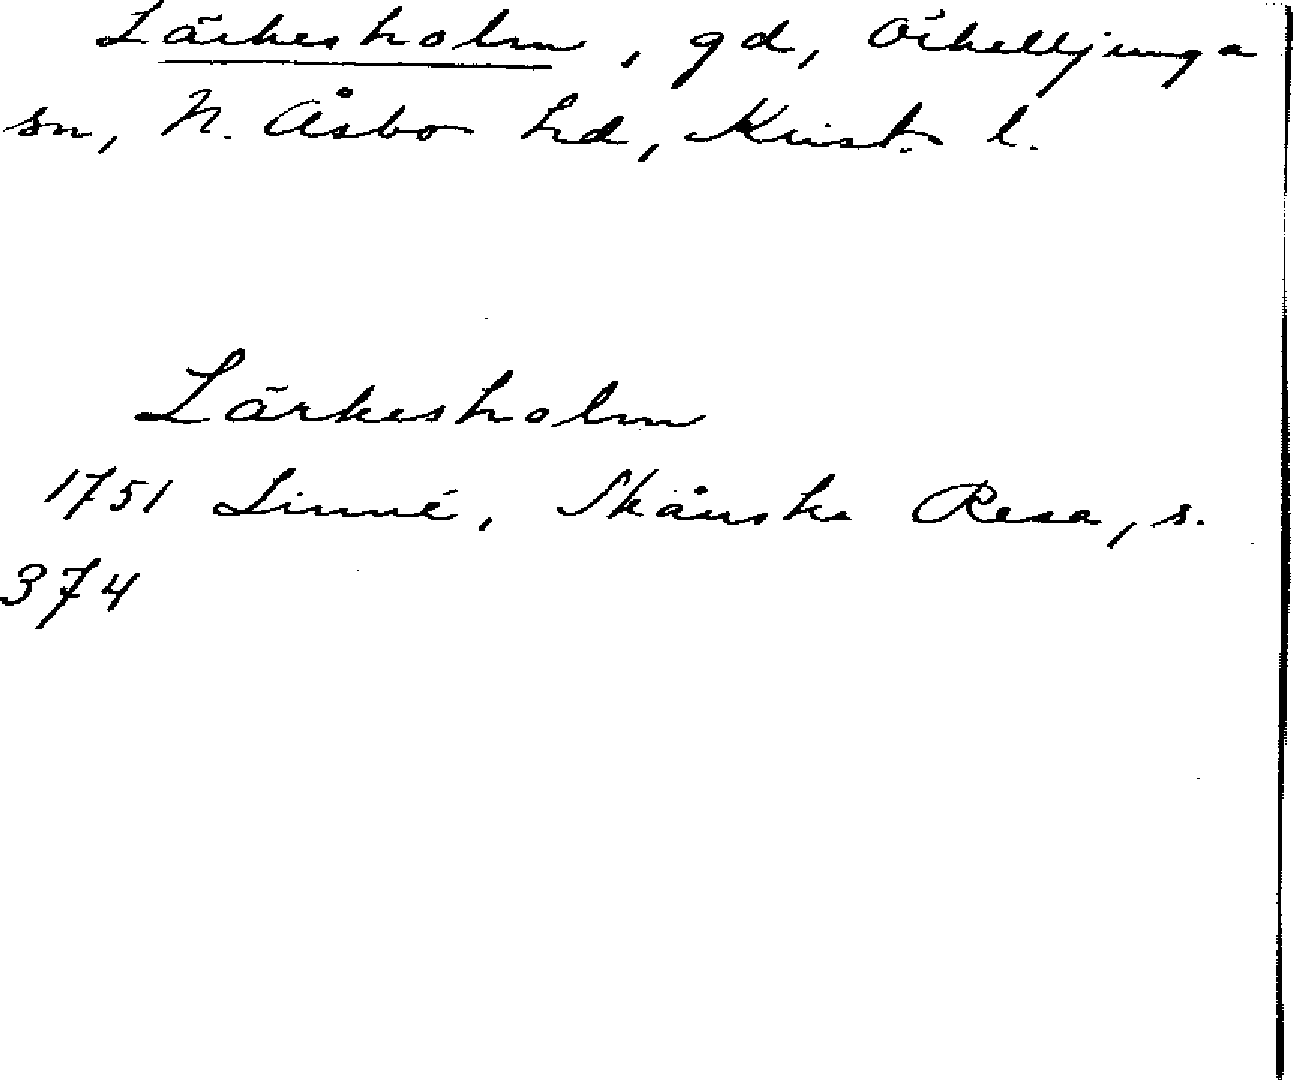 Lärkesholm, gd, Örkelljunga
sn, N. Åsbo hd, Krist. l.
Lärkesholm
1751 Linné, Skånska Resa, s.
374